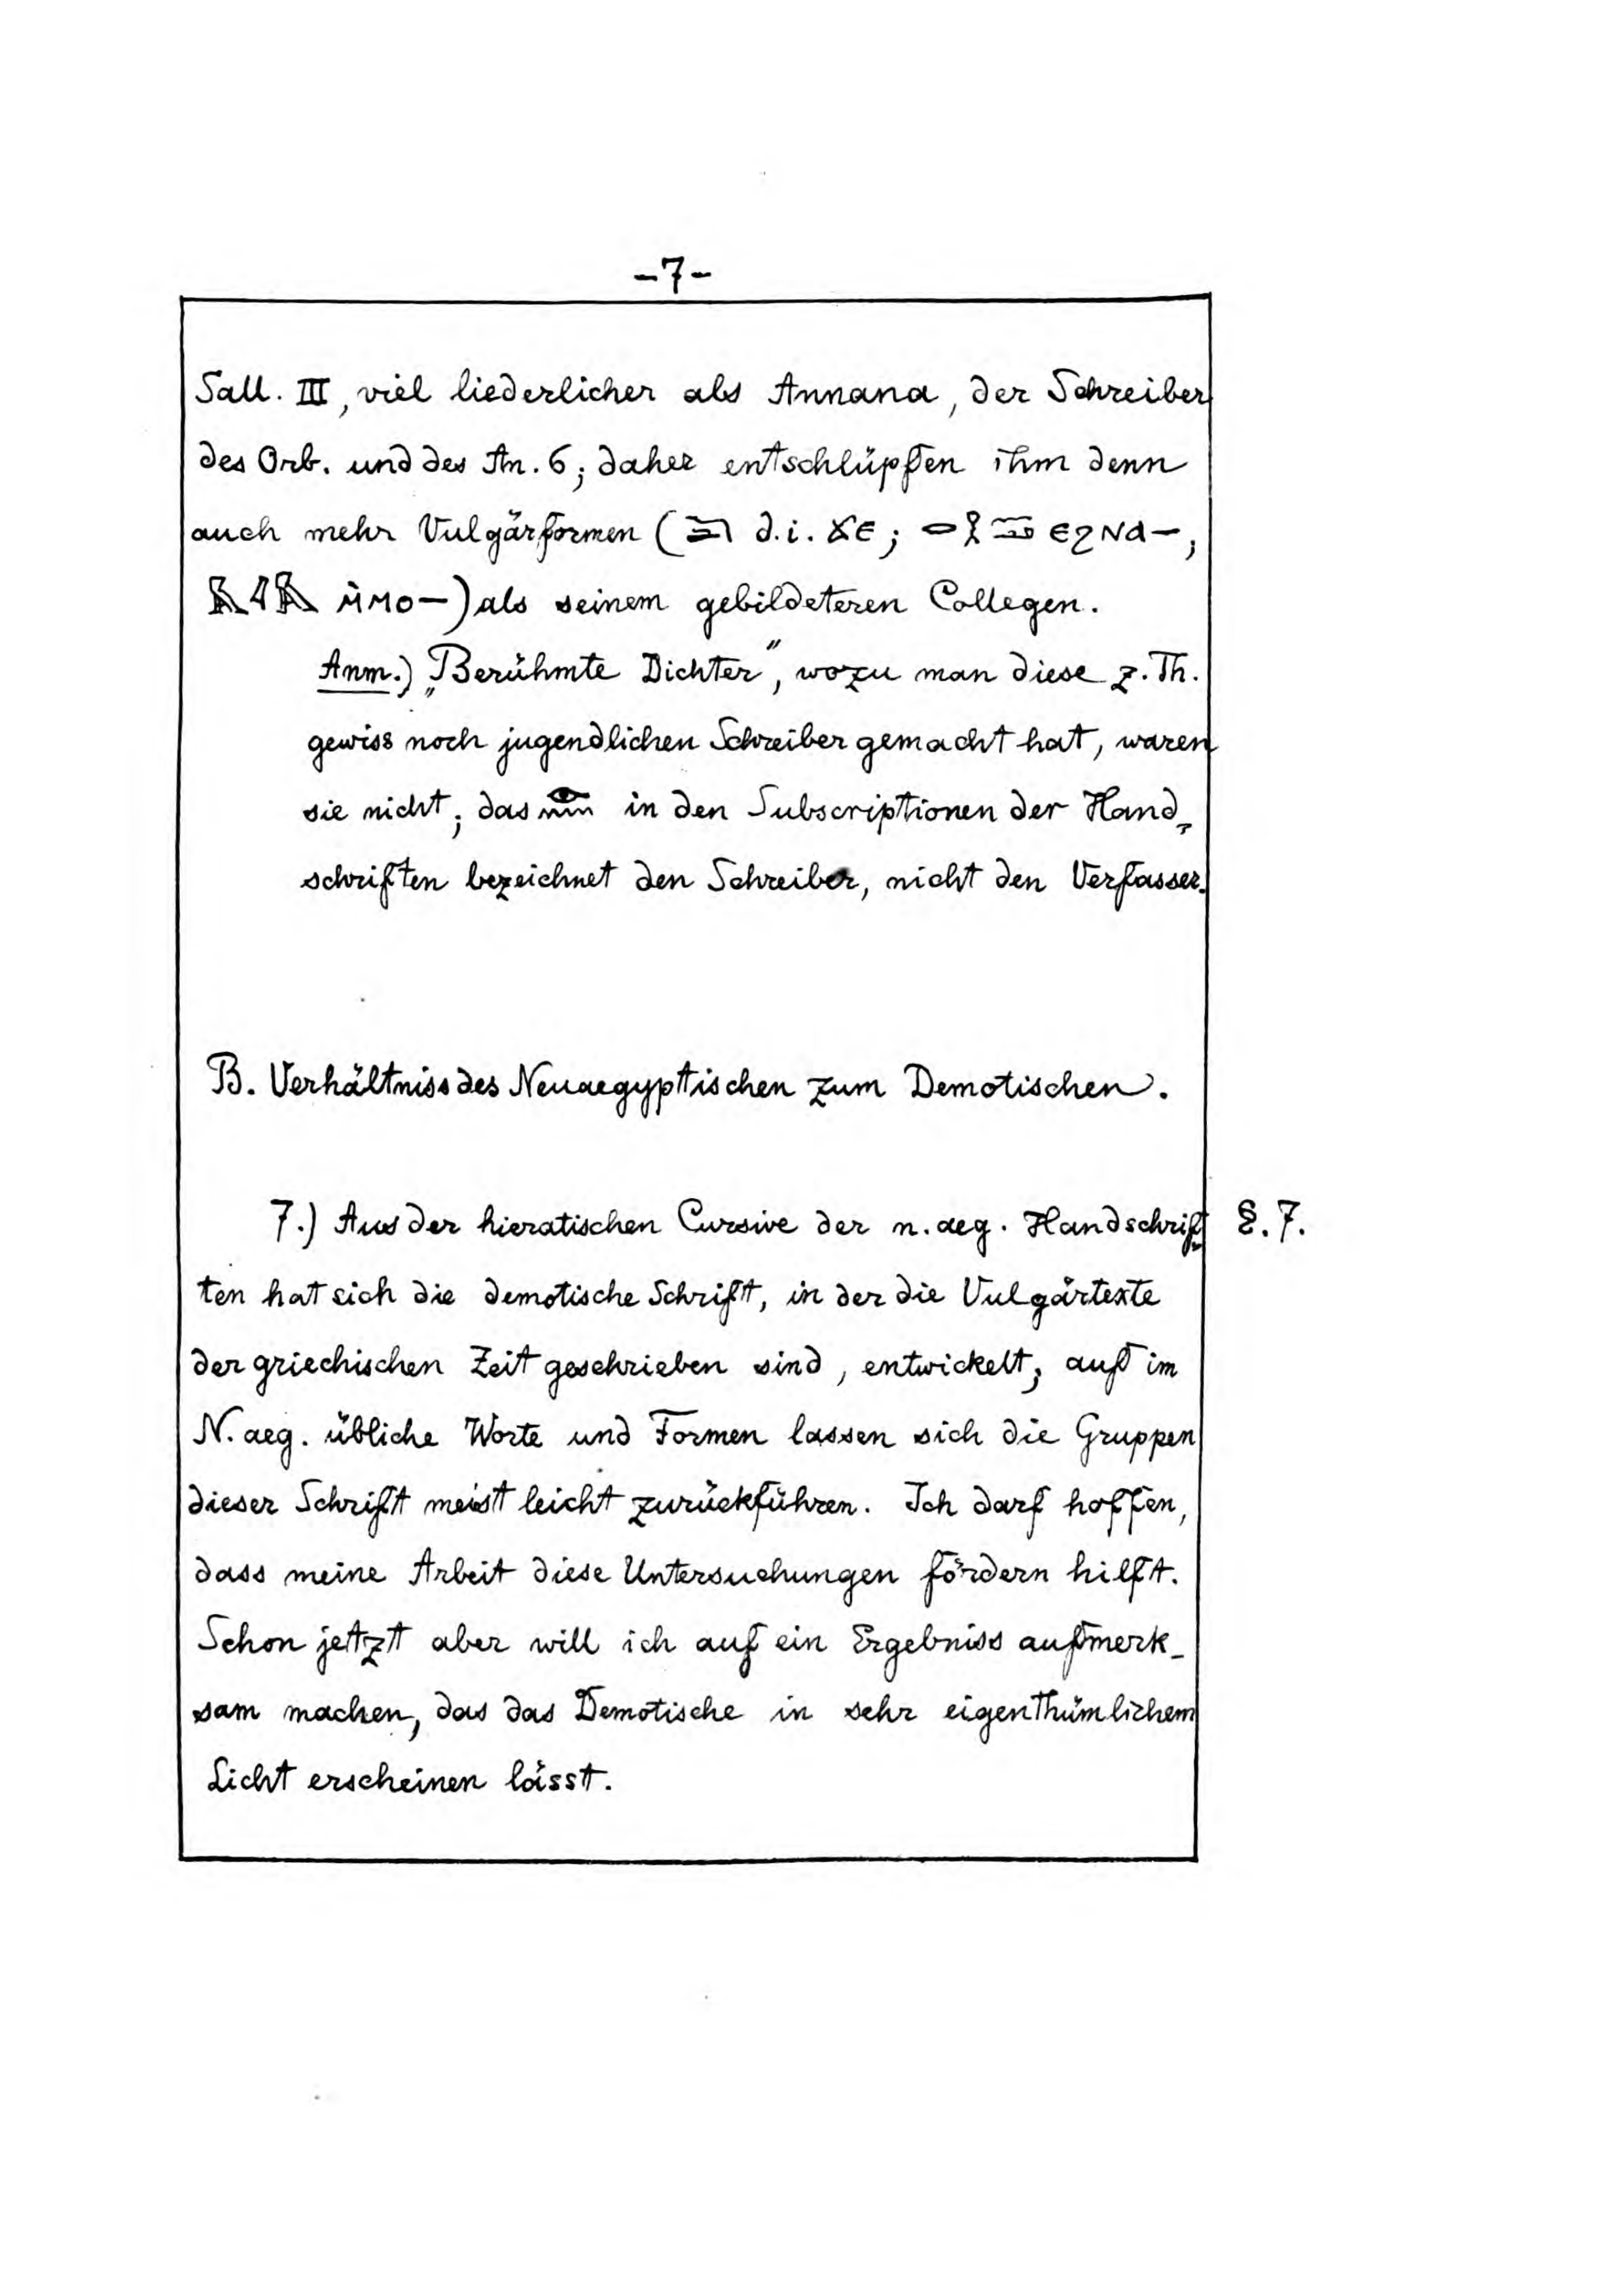 -7-
Sall. III, viel liederlicher als Annana, der Schreiber
des Orb. und des An. 6; daher entschlüpfen ihm denn
auch mehr Vulgärformen ( d.i. ϪЄ; ЄϩΝΑ—,
ⲘⲘⲞ—) als seinem gebildeteren Collegen.
Anm.) „Berühmte Dichter", wozu man diese z. Th.
gewiss noch jugendlichen Schreiber gemacht hat, waren
sie nicht; das in den Subscriptionen der Hand-
schriften bezeichnet den Schreiber, nicht den Verfasser.
B. Verhältniss des Neuaegyptischen zum Demotischen.
7.) Aus der hieratischen Cursive der n. aeg. Handschrif- §. 7.
ten hat sich die demotische Schrift, in der die Vulgärtexte
der griechischen Zeit geschrieben sind, entwickelt; auf im
N. aeg. übliche Worte und Formen lassen sich die Gruppen
dieser Schrift meist leicht zurückführen. Ich darf hoffen,
dass meine Arbeit diese Untersuchungen fördern hilft.
Schon jetzt aber will ich auf ein Ergebniss aufmerk-
sam machen, das das Demotische in sehr eigenthümlichem
Licht erscheinen lässt.